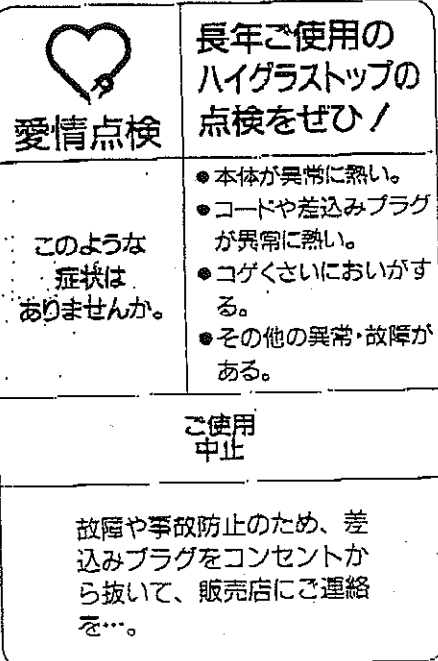 愛情点検
長年ご使用の
ハイグラストップの
点検をぜひ！
このような
症状は
ありませんか。
●本体が異常に熱い。
●コードや差込みプラグ
が異常に熱い。
●コゲくさいにおいがす
る。
●その他の異常・故障が
ある。
ご使用
中止
故障や事故防止のため、差
込みプラグをコンセントか
ら抜いて、販売店にご連絡
を…。